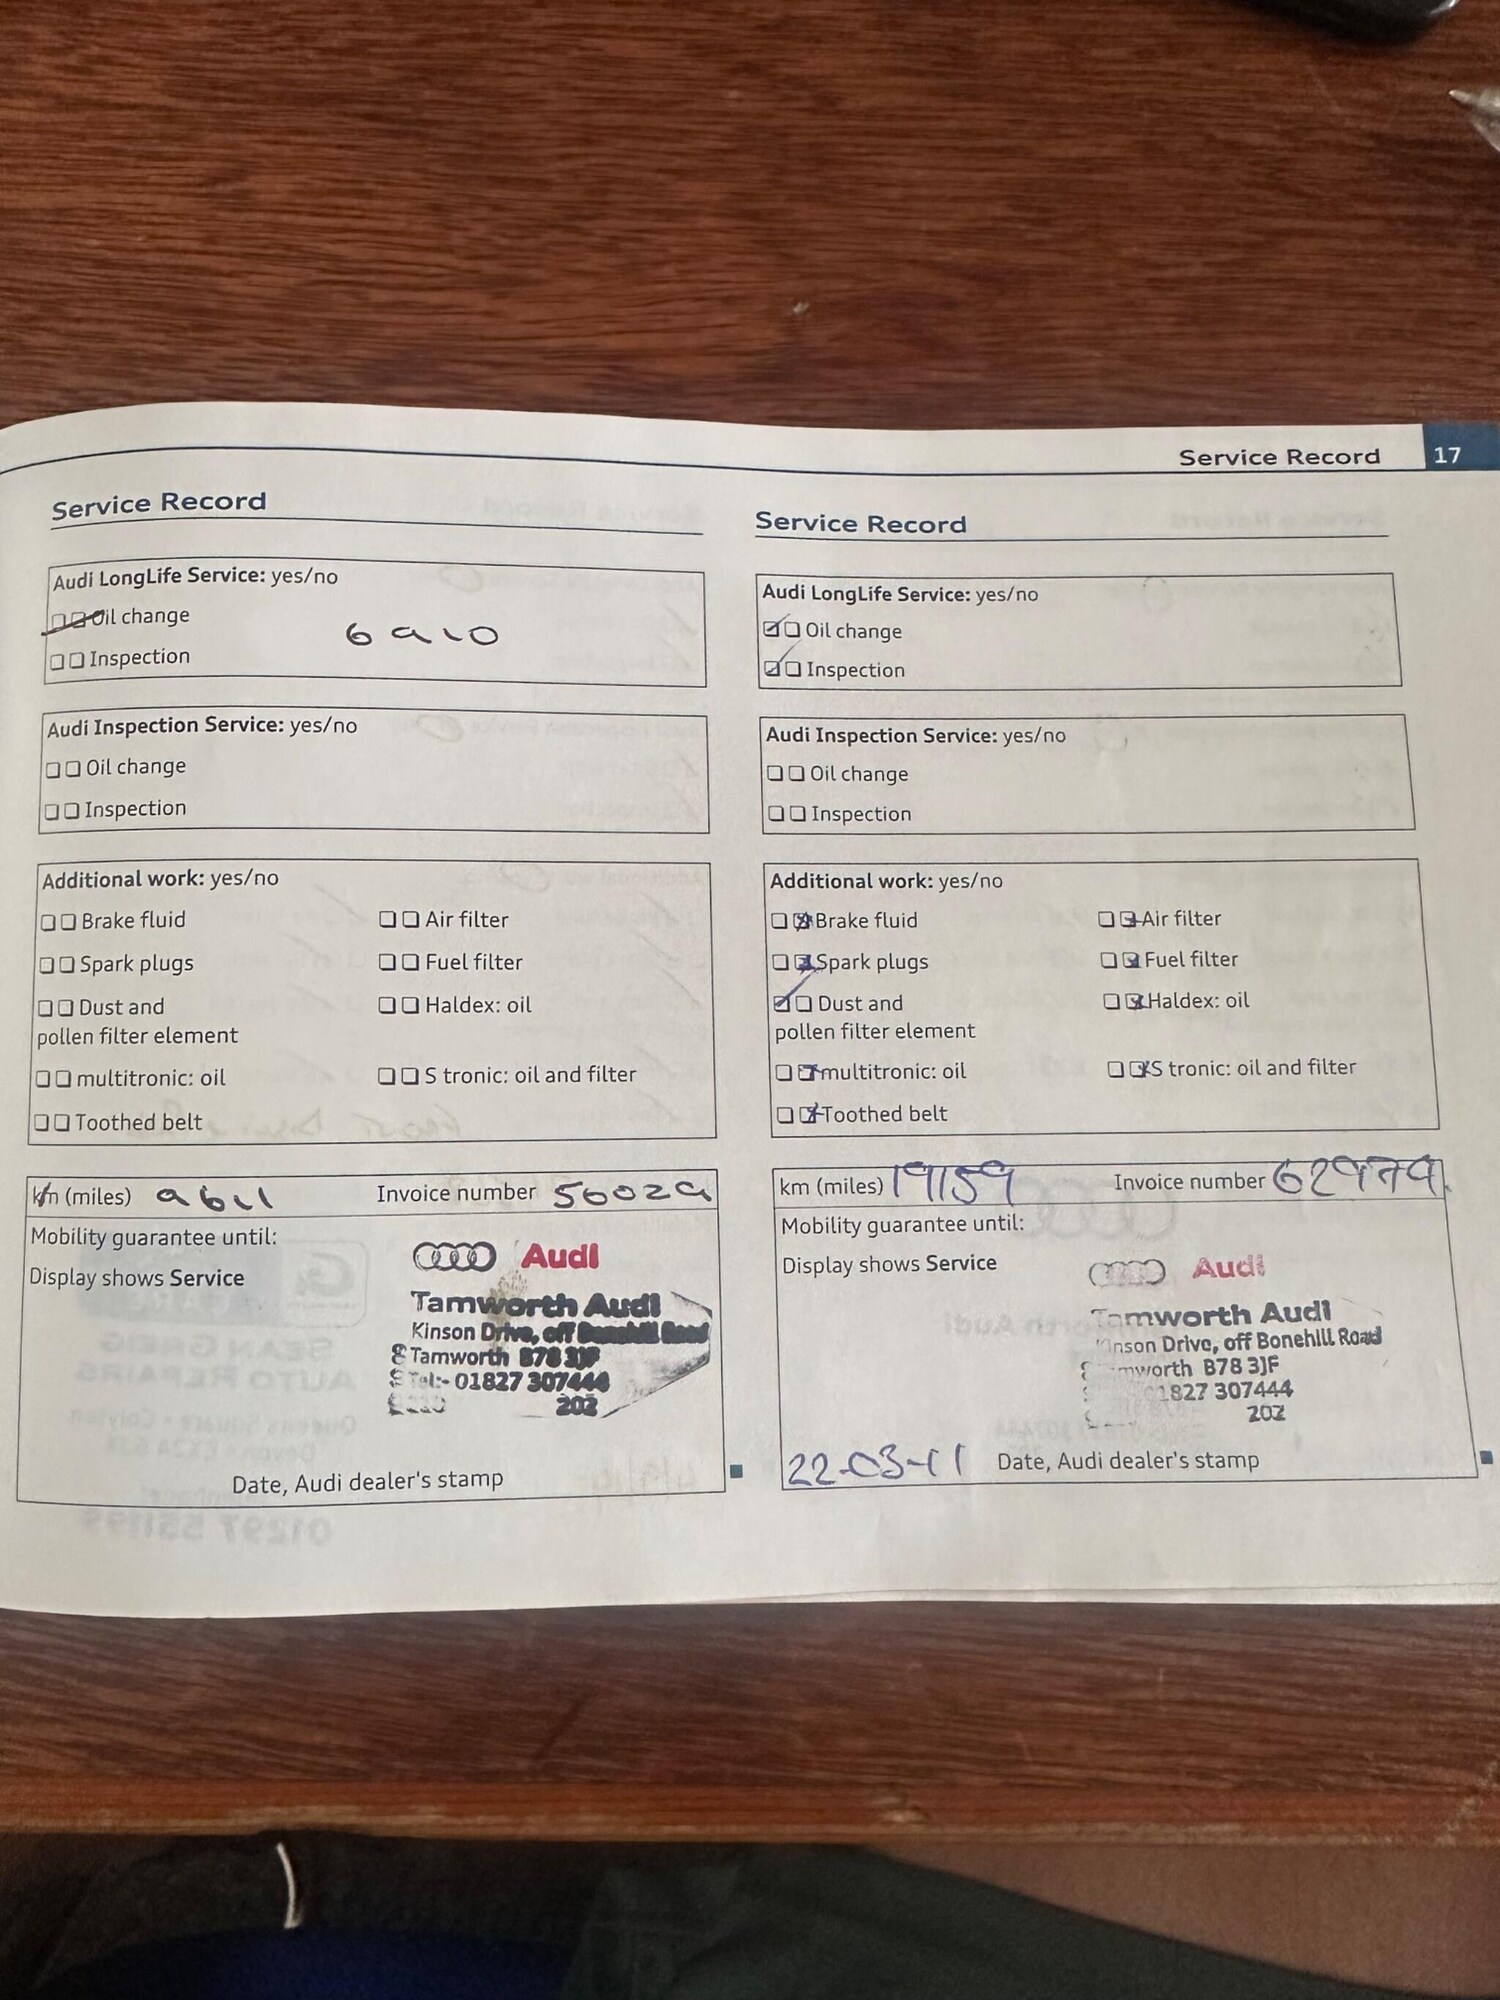 Service Record 17
Service Record
Audi LongLife Service: yes/no
Oil change
6 9 10
Inspection
Audi Inspection Service: yes/no
Oil change
Inspection
Additional work: yes/no
Brake fluid Air filter
Spark plugs Fuel filter
Dust and Haldex: oil
pollen filter element
multitronic: oil S tronic: oil and filter
Toothed belt
km (miles) 9611 Invoice number 56029
Mobility guarantee until:
Display shows Service
Audi
Tamworth Audi
Kinson Drive, off Bonehill Road
Tamworth B78 3JF
Tel:- 01827 307444
202
Date, Audi dealer's stamp
Service Record
Audi LongLife Service: yes/no
Oil change
Inspection
Audi Inspection Service: yes/no
Oil change
Inspection
Additional work: yes/no
Brake fluid Air filter
Spark plugs Fuel filter
Dust and Haldex: oil
pollen filter element
multitronic: oil S tronic: oil and filter
Toothed belt
km (miles) 19159 Invoice number 62979
Mobility guarantee until:
Display shows Service
Audi
Tamworth Audi
Kinson Drive, off Bonehill Road
Tamworth B78 3JF
01827 307444
202
22-03-11 Date, Audi dealer's stamp